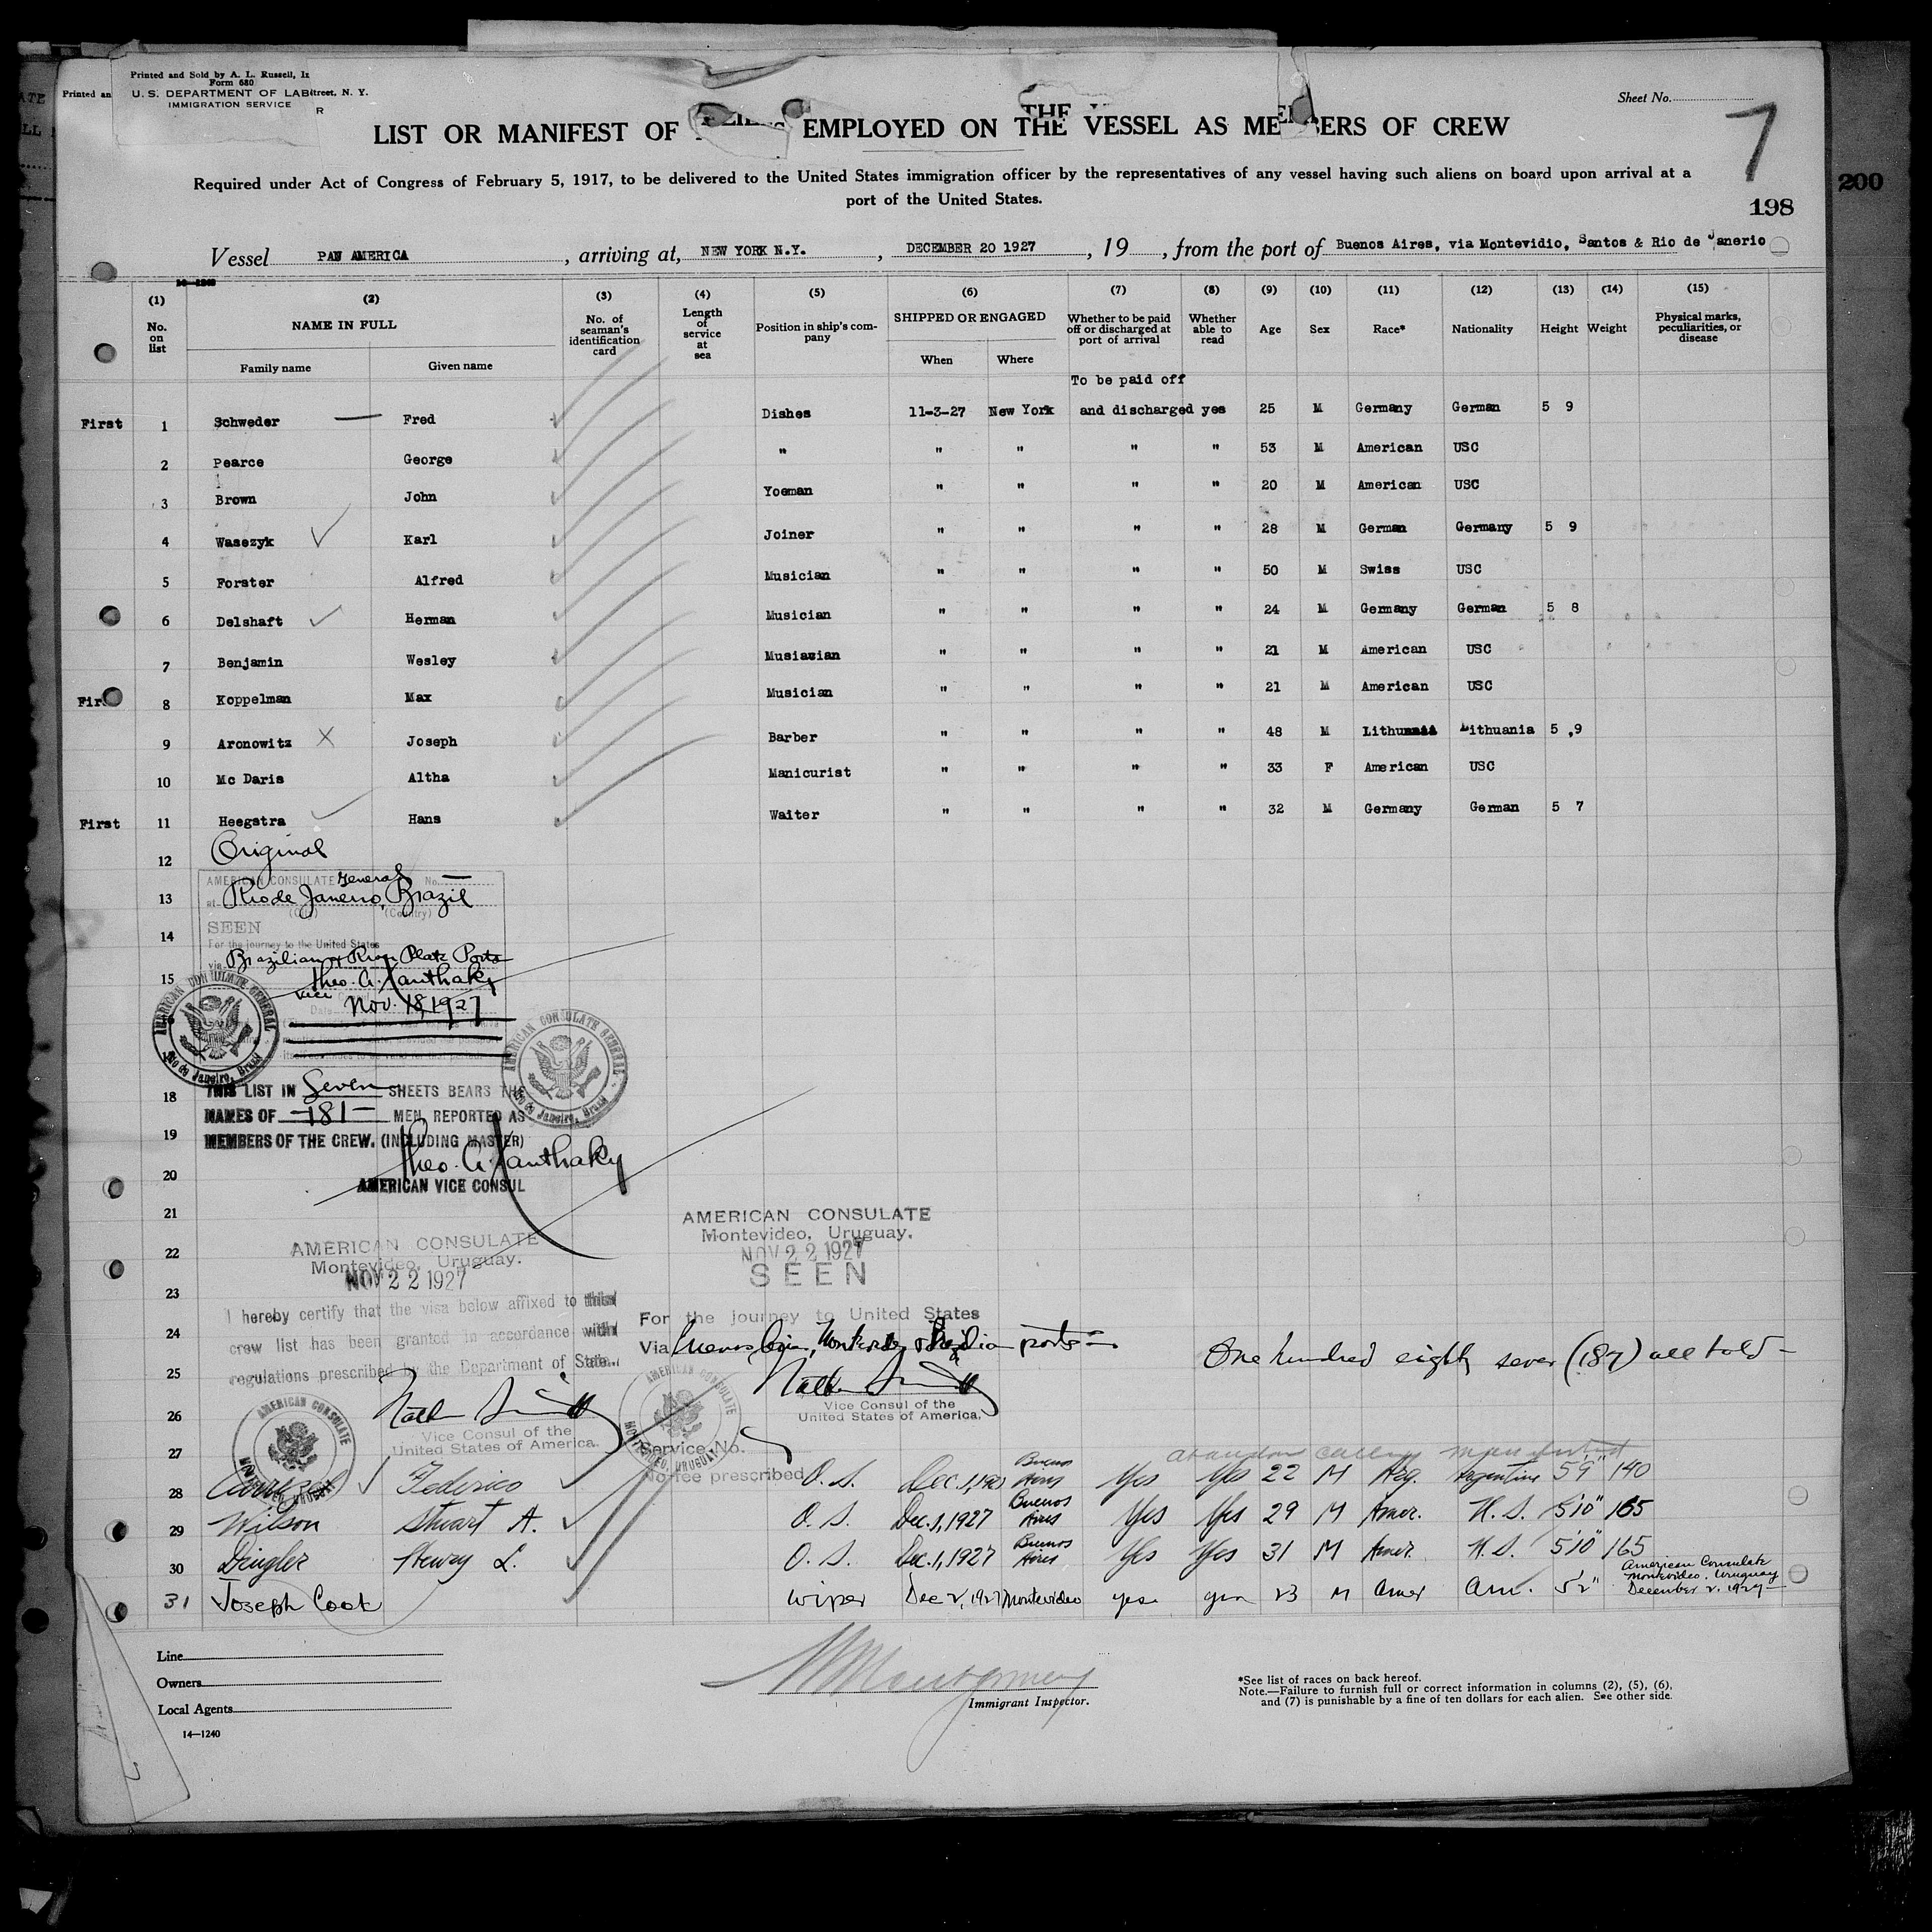 Printed and Sold by A. L. Russell, I
Form 680
Printed an U. S. DEPARTMENT OF LAB treet, N. Y.
IMMIGRATION SERVICE
R
Sheet No.
7
LIST OR MANIFEST OF EMPLOYED ON THE VESSEL AS MEMBERS OF CREW
Required under Act of Congress of February 5, 1917, to be delivered to the United States immigration officer by the representatives of any vessel having such aliens on board upon arrival at a
port of the United States.
200
198
Vessel PAN AMERICA, arriving at, NEW YORK N.Y., DECEMBER 20 1927, 19, from the port of Buenos Aires, via Montevidio, Santos & Rio de Janerio
(1) (2) (3) (4) (5) (6) (7) (8) (9) (10) (11) (12) (13) (14) (15)
No. on list NAME IN FULL Family name Given name No. of seaman's identification card Length of service at sea Position in ship's company SHIPPED OR ENGAGED When Where Whether to be paid off or discharged at port of arrival Whether able to read Age Sex Race* Nationality Height Weight Physical marks, peculiarities, or disease
To be paid off
First 1 Schweder — Fred Dishes 11-3-27 New York and discharged yes 25 M Germany German 5 9
2 Pearce George " " " " " 53 M American USC
3 Brown John Yoeman " " " " 20 M American USC
4 Wasezyk Karl Joiner " " " " 28 M German Germany 5 9
5 Forster Alfred Musician " " " " 50 M Swiss USC
6 Delshaft Herman Musician " " " " 24 M Germany German 5 8
7 Benjamin Wesley Musiazian " " " " 21 M American USC
First 8 Koppelman Max Musician " " " " 21 M American USC
9 Aronowitz X Joseph Barber " " " " 48 M Lithuania Lithuania 5 ,9
10 Mc Daris Altha Manicurist " " " " 33 F American USC
First 11 Heegstra Hans Waiter " " " " 32 M Germany German 5 7
12 Original
AMERICAN CONSULATE General No. —
13 at Rio de Janeiro, Brazil
(City) (Country)
14 SEEN
For the journey to the United States
via Brazilian & River Plate Ports
15 Theo. A. Xanthaky
Vice
Nov. 18, 1927
AMERICAN CONSULATE GENERAL
Rio de Janeiro, Brazil
AMERICAN CONSULATE GENERAL
Rio de Janeiro, Brazil
18 THIS LIST IN Seven SHEETS BEARS THE
NAMES OF —181— MEN, REPORTED AS
19 MEMBERS OF THE CREW. (INCLUDING MASTER)
Theo. A. Xanthaky
20 AMERICAN VICE CONSUL
21
22
23
24
25
26
27
AMERICAN CONSULATE
Montevideo, Uruguay.
NOV 22 1927
I hereby certify that the visa below affixed to this
crew list has been granted in accordance with
regulations prescribed by the Department of State.
Vice Consul of the
United States of America.
AMERICAN CONSULATE
MONTEVIDEO, URUGUAY
AMERICAN CONSULATE
Montevideo, Uruguay.
NOV 22 1927
SEEN
For the journey to United States
Via Buenos Aires, Montevideo & Brazilian ports
Vice Consul of the
United States of America.
AMERICAN CONSULATE
MONTEVIDEO, URUGUAY
Service No.
No fee prescribed
One hundred eighty seven (187) all told —
28 Federico O. S. Dec. 1, 1927 Buenos Aires Yes Yes 22 M Arg. Argentine 5'9" 140
29 Wilson Stuart A. O. S. Dec. 1, 1927 Buenos Aires Yes Yes 29 M Amer. U. S. 5'10" 165
30 Dingler Henry L. O. S. Dec. 1, 1927 Buenos Aires Yes Yes 31 M Amer. U. S. 5'10" 165
31 Joseph Cook wiper Dec 2, 1927 Montevideo yes yes 23 M Amer Am. 5'2"
American Consulate
Montevideo, Uruguay
December 2, 1927
Line
Owners
Local Agents
14—1240
Montgomery
Immigrant Inspector.
*See list of races on back hereof.
Note.—Failure to furnish full or correct information in columns (2), (5), (6),
and (7) is punishable by a fine of ten dollars for each alien. See other side.